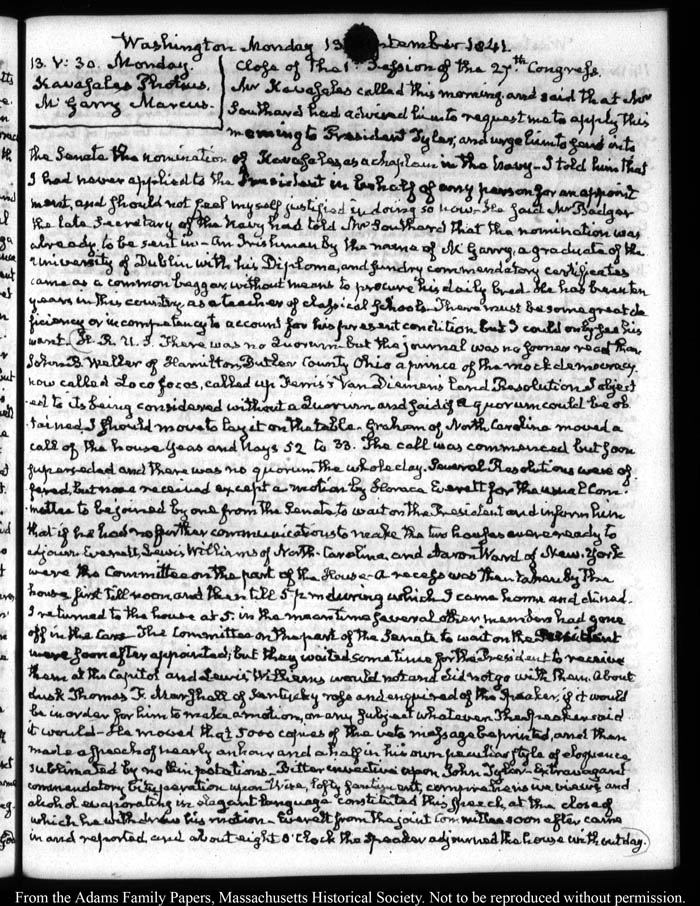 Washington Monday 13 September 1841.
13. V: 30. Monday.
Kavasales Photius.
McGarry Marcus.
Close of the 1st Session of the 27th Congress.
Mr Kavasales called this morning and said that Mr
Southard had advised him to request me to apply this
morning to President Tyler, and urge him to send into
the Senate the nomination of Kavasales as a chaplain in the Navy. I told him that
I had never applied to the President in behalf of any person for an appoint
ment, and should not feel myself justified in doing so now. He said Mr Badger
the late Secretary of the Navy had told Mr Southard that the nomination was
already to be sent in — An Irishman by the name of McGarry, a graduate of the
University of Dublin with his Diploma, and sundry commendatory certificates
came as a common beggar, without means to procure his daily bred. He has been ten
years in this country, as a teacher of classical schools. There must be some great de
ficiency or incompetency to account for his present condition but I could only see his
want. H. R. U. S. There was no Quorum — but the journal was no sooner read than
John B. Weller of Hamilton, Butler County Ohio a prince of the mock democracy.
now called Loco focos, called up Ferris's Van Diemens Land Resolution. I object
ed to its being considered without a Quorum and said if a quorum could be ob
tained, I should move to lay it on the table. Graham of North Carolina moved a
call of the house Yeas and Nays 52 to 33. The call was commenced but soon
superseded and there was no quorum the whole day. Several Resolutions were of
fered, but none received except a motion by Horace Everett for the usual Com
mittee to be joined by one from the Senate to wait on the President and inform him
that if he had no further communications to make the two houses were ready to
adjourn Everett, Lewis Williams of North-Carolina, and Aaron Ward of New-York
were the Committee on the part of the House — A recess was then taken by the
house first till noon, and then till 5 p m during which I came home and dined.
I returned to the house at 5. in the mean time several other members had gone
off in the Cars. The Committee on the part of the Senate to wait on the President
were soon after appointed; but they waited some time for the President to receive
them at the Capitol and Lewis Williams would not and did not go with them. About
dusk Thomas F. Marshall of Kentucky rose and enquired of the Speaker, if it would
be in order for him to make a motion, on any subject whatever. The Speaker said
it would — He moved that 5000 copies of the veto message be printed, and then
made a speech of nearly an hour and a half in his own peculiar style of eloquence
sublimated by no thin potations — Bitter invective upon John Tyler — Extravagant
commendatory vituperation upon Wise, lofty sentiment, comprehensive views, and
alcohol evaporating in elegant language constituted this speech, at the close of
which he withdrew his motion — Everett from the joint Committee soon after came
in and reported, and about eight O'Clock the Speaker adjourned the house without day.
From the Adams Family Papers, Massachusetts Historical Society. Not to be reproduced without permission.